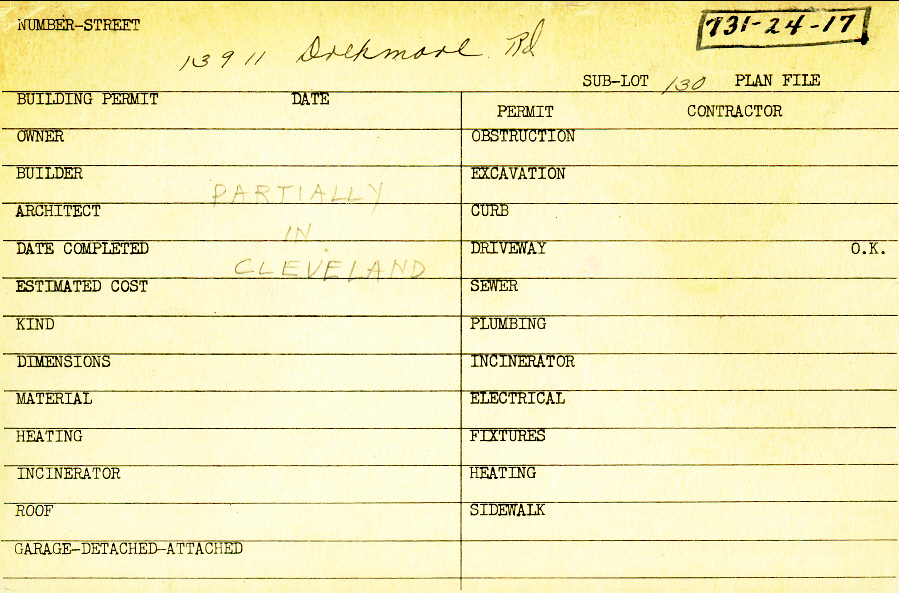 NUMBER-STREET
731-24-17
13911 Drexmore Rd
SUB-LOT 130 PLAN FILE
BUILDING PERMIT DATE
PERMIT CONTRACTOR
OWNER
OBSTRUCTION
BUILDER
EXCAVATION
PARTIALLY
ARCHITECT
CURB
IN
DATE COMPLETED
DRIVEWAY O.K.
CLEVELAND
ESTIMATED COST
SEWER
KIND
PLUMBING
DIMENSIONS
INCINERATOR
MATERIAL
ELECTRICAL
HEATING
FIXTURES
INCINERATOR
HEATING
ROOF
SIDEWALK
GARAGE-DETACHED-ATTACHED